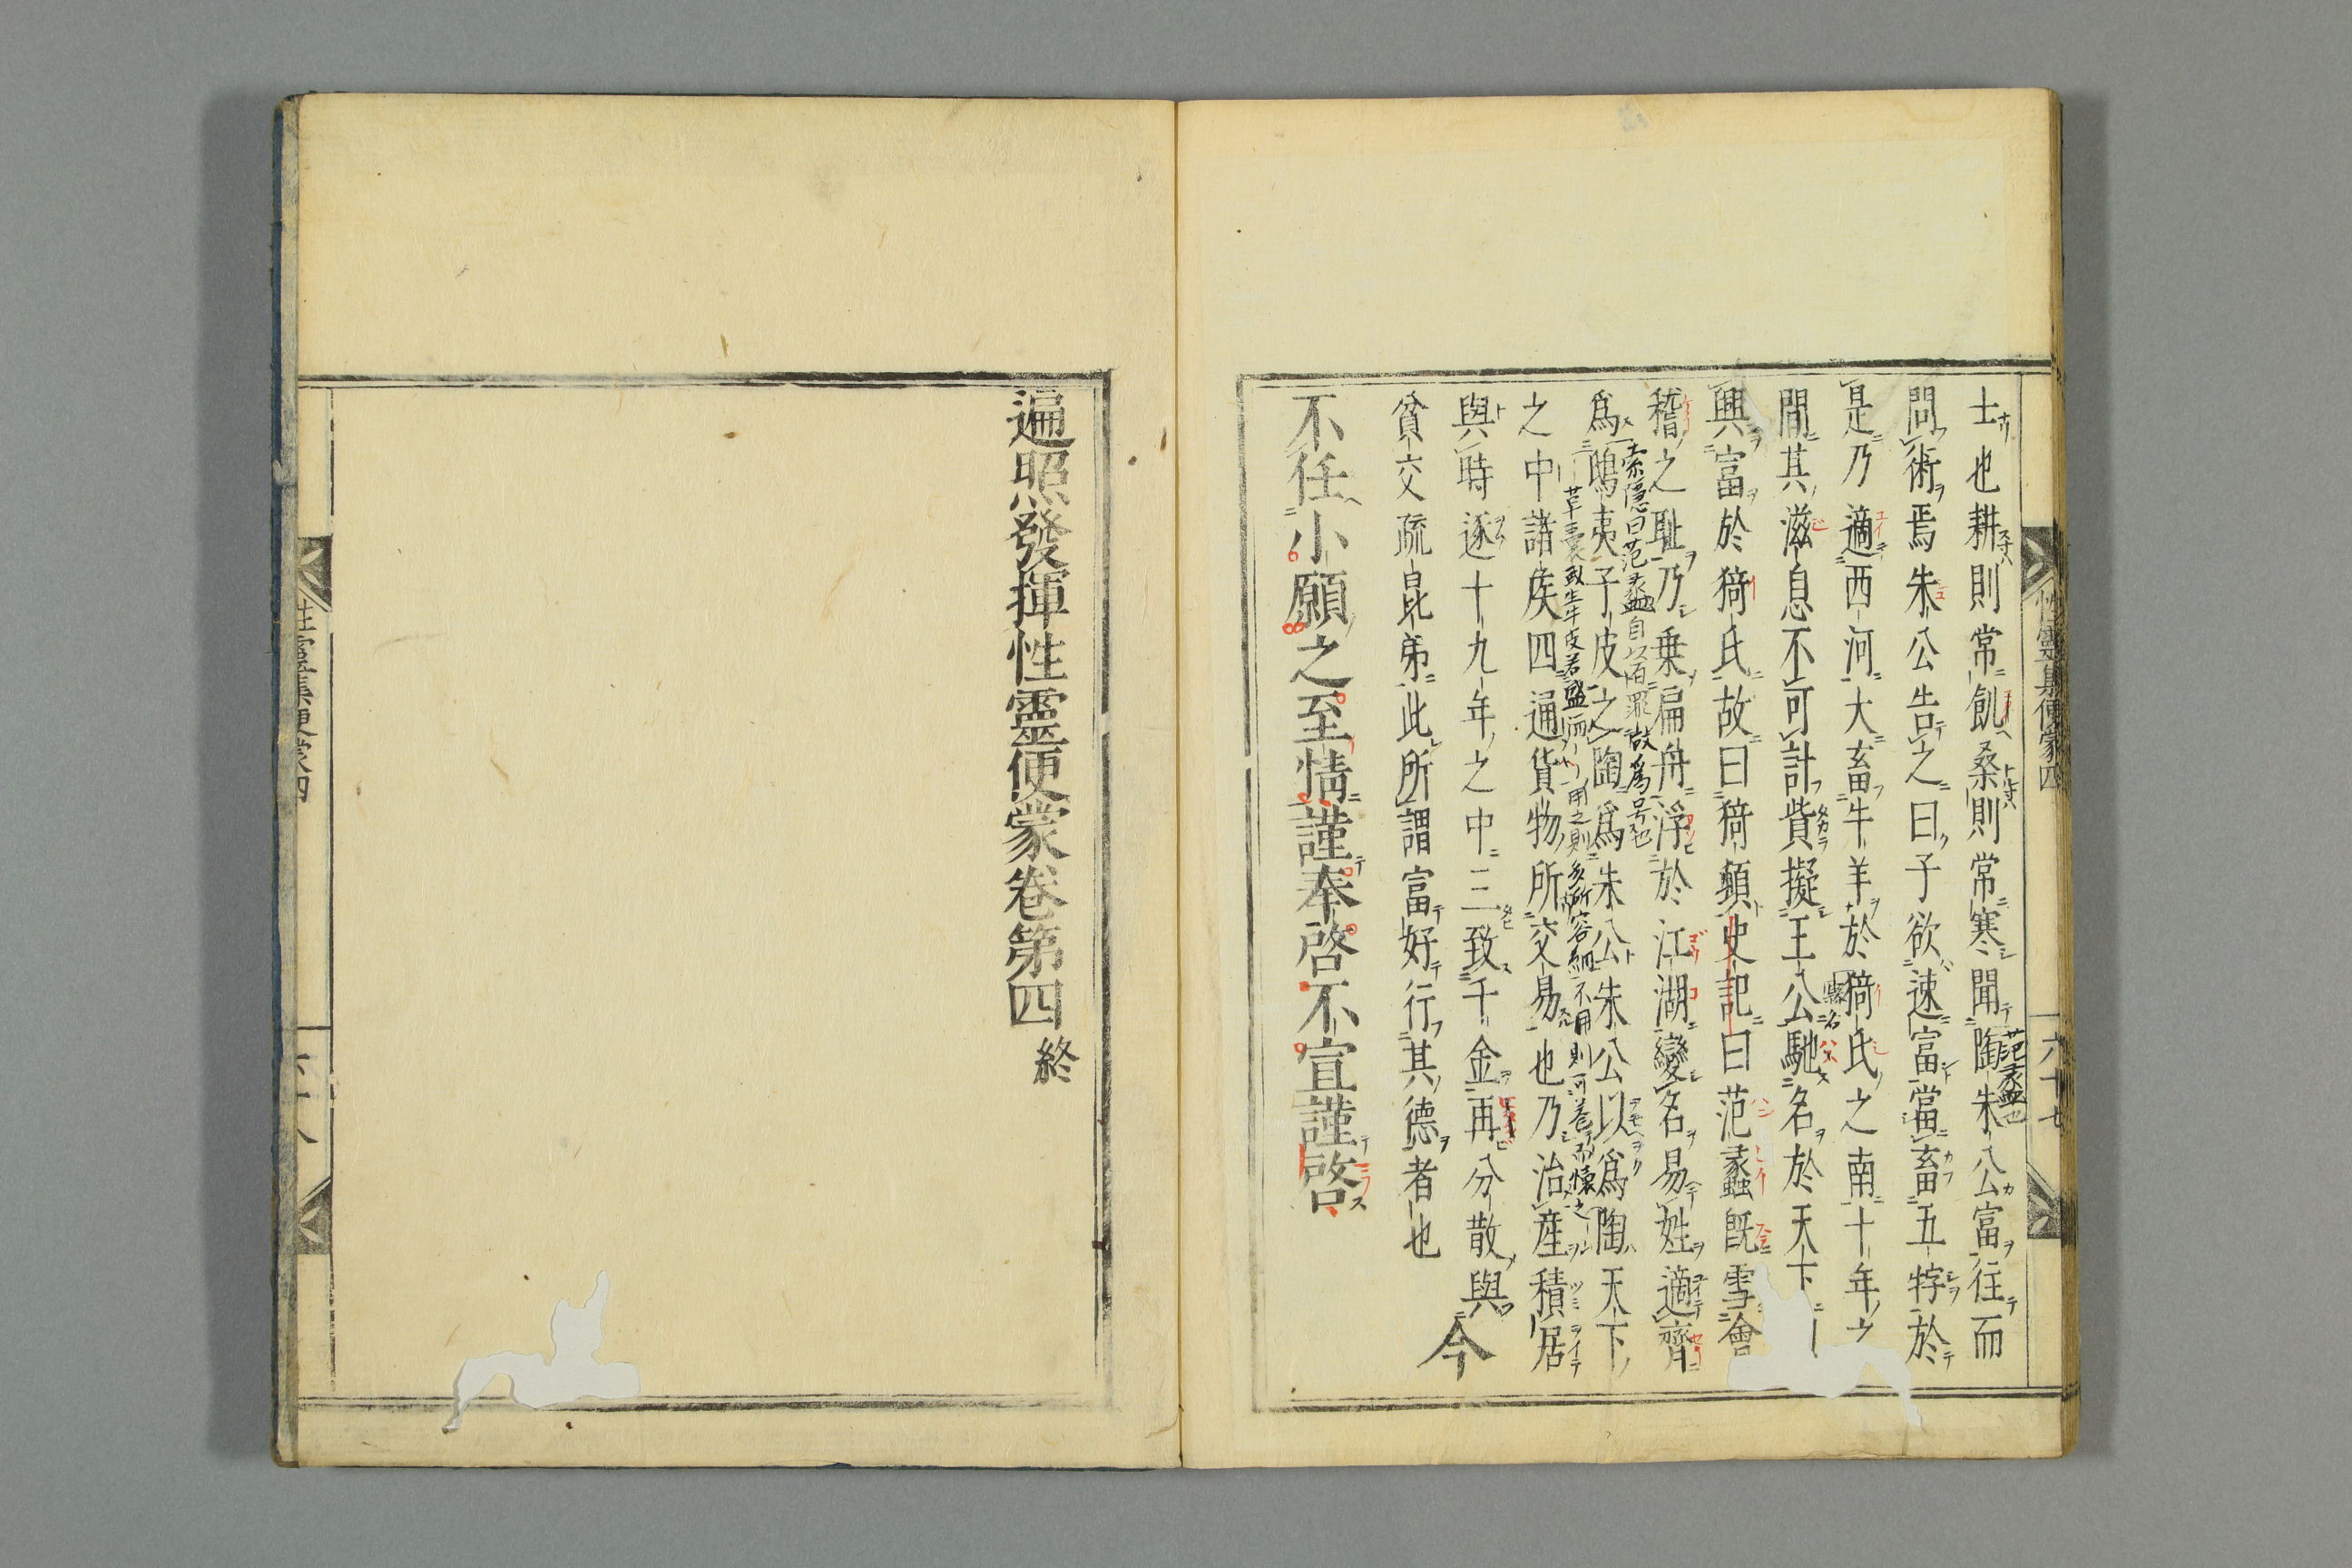 性靈集便蒙四
六十七
士也耕則常飢桑則常寒聞陶朱公富往而
范蠡也
問術焉朱公告之曰子欲速富當畜五牸於
是乃適西河大畜牛羊於猗氏之南十年之
縣名
間其滋息不可計貲擬王公馳名於天下
興富於猗氏故曰猗頓史記曰范蠡既雪會
稽之耻乃乗扁舟浮於江湖變名易姓適齊
索隱曰范蠡自以有罪故為号也
爲鴟夷子皮之陶爲朱公朱公以爲陶天下
之中諸侯四通貨物所交易也乃治産積居
與時逐十九年之中三致千金再分散與
貧交疏昆弟此所謂富好行其德者也
今
不任小願之至情謹奉啓不宣謹啓
遍照發揮性靈便蒙卷第四終
性靈集便蒙四